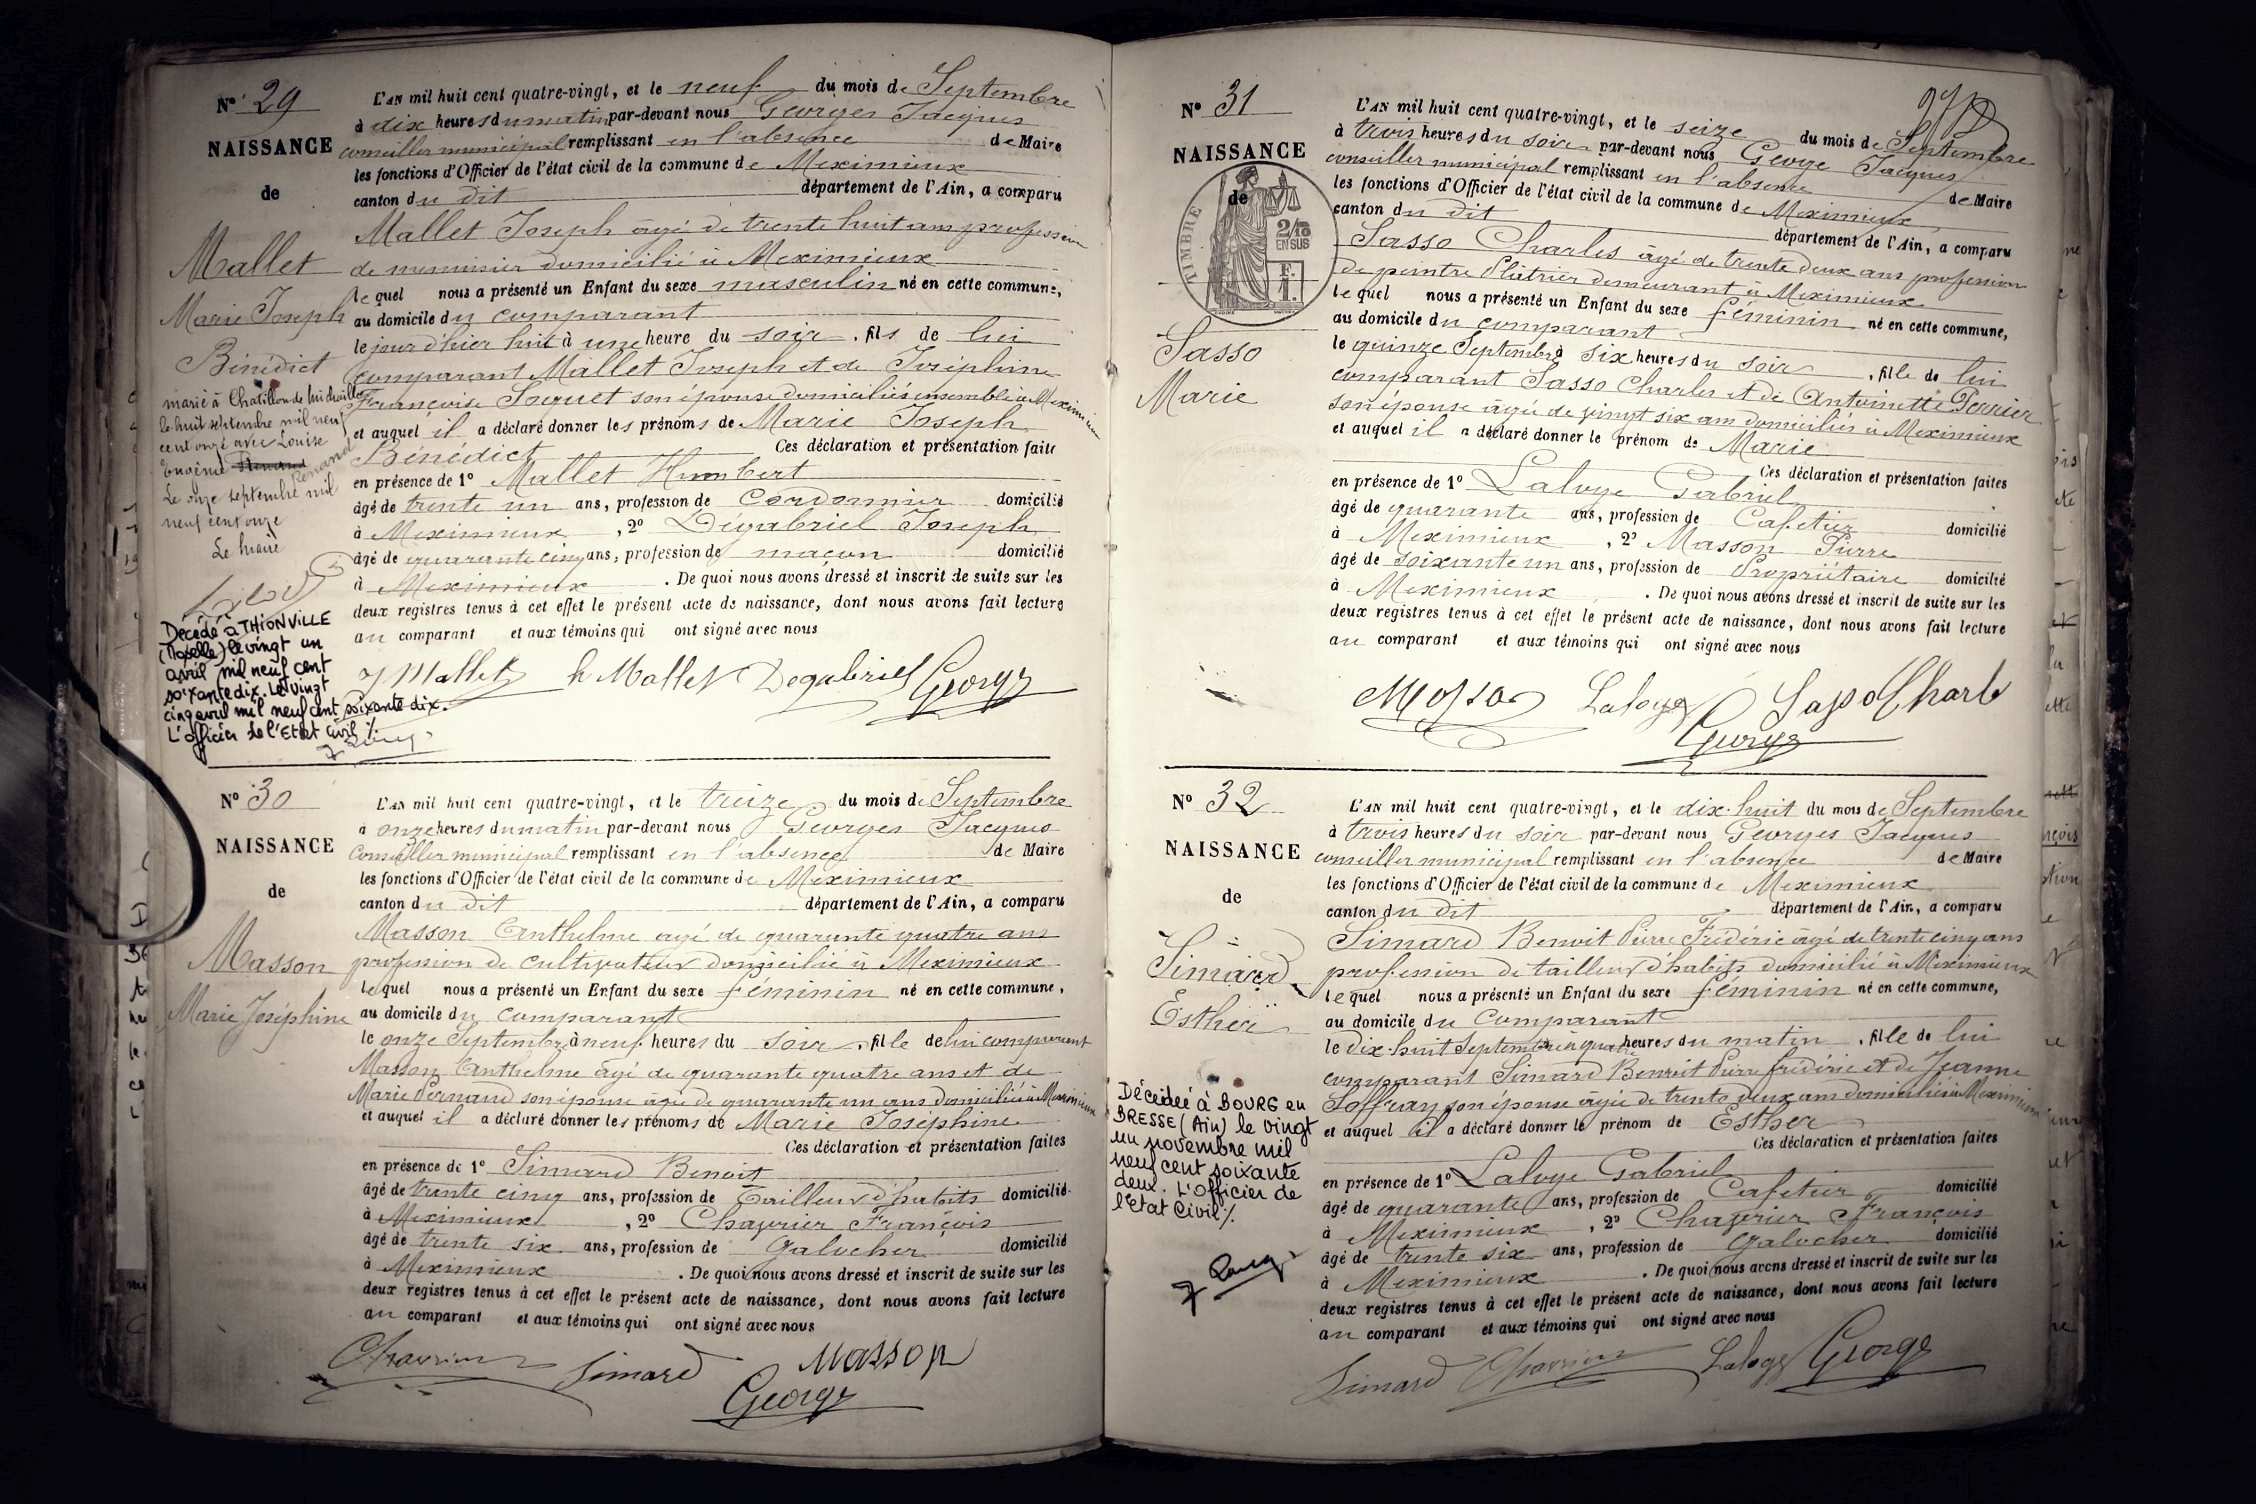 Nº 29
NAISSANCE
de
Mallet
Marie Joseph
Bénédict
marié à Chatillon de
le huit septembre mil neuf
cent onze avec Louise
Eugénie Renand
Renand
Le onze septembre mil
neuf cent onze
Le Maire
Décédé à THIONVILLE
(Moselle) le vingt un
avril mil neuf cent
soixante dix. Le vingt
cinq avril mil neuf cent soixante dix.
L'officier de l'Etat Civil %.
L'AN mil huit cent quatre-vingt, et le neuf du mois de Septembre
à dix heures du matin par-devant nous Georges Jacques
conseiller municipal remplissant en l'absence de Maire
les fonctions d'Officier de l'état civil de la commune de Meximieux
canton du dit département de l'Ain, a comparu
Mallet Joseph âgé de trente huit ans profession
de menuisier domicilié à Meximieux
lequel nous a présenté un Enfant du sexe masculin né en cette commune,
au domicile du comparant
le jour d'hier huit à une heure du soir, fils de lui
comparant Mallet Joseph et de Joséphine
Françoise Soquet son épouse domiciliés ensemble à Meximieux
et auquel il a déclaré donner les prénoms de Marie Joseph
Bénédict Ces déclaration et présentation faite
en présence de 1º Mallet Humbert
âgé de trente un ans, profession de Cordonnier domicilié
à Meximieux, 2º Dégabriel Joseph
âgé de quarante cinq ans, profession de maçon domicilié
à Meximieux. De quoi nous avons dressé et inscrit de suite sur les
deux registres tenus à cet effet le présent acte de naissance, dont nous avons fait lecture
au comparant et aux témoins qui ont signé avec nous
J Mallet h Mallet Degabriel George
Nº 30
NAISSANCE
de
Masson
Marie Joséphine
L'AN mil huit cent quatre-vingt, et le treize du mois de Septembre
à onze heures du matin par-devant nous Georges Jacques
Conseiller municipal remplissant en l'absence de Maire
les fonctions d'Officier de l'état civil de la commune de Meximieux
canton du dit département de l'Ain, a comparu
Masson Anthelme agé de quarante quatre ans
profession de cultivateur domicilié à Meximieux
lequel nous a présenté un Enfant du sexe féminin né en cette commune,
au domicile du comparant
le onze Septembre à neuf heures du soir, fille de lui comparant
Masson Anthelme âgé de quarante quatre ans et de
Marie Pernand son épouse agée de quarante un ans domiciliés à Meximieux
et auquel il a déclaré donner les prénoms de Marie Joséphine
Ces déclaration et présentation faites
en présence de 1º Simard Benoit
âgé de trente cinq ans, profession de Tailleur d'habits domicilié
à Meximieux, 2º Chavrier François
âgé de trente six ans, profession de galocher domicilié
à Meximieux. De quoi nous avons dressé et inscrit de suite sur les
deux registres tenus à cet effet le présent acte de naissance, dont nous avons fait lecture
au comparant et aux témoins qui ont signé avec nous
Chavrier Simard Masson
George
Nº 31
NAISSANCE
de
TIMBRE
2/10
EN SUS
Sasso
Marie
L'AN mil huit cent quatre-vingt, et le seize du mois de Septembre
à trois heures du soir par-devant nous George Jacques
conseiller municipal remplissant en l'absence de Maire
les fonctions d'Officier de l'état civil de la commune de Meximieux
canton du dit département de l'Ain, a comparu
Sasso Charles âgé de trente deux ans profession
de peintre Plâtrier demeurant à Meximieux
lequel nous a présenté un Enfant du sexe féminin né en cette commune,
au domicile du comparant
le quinze Septembre à six heures du soir, fille de lui
comparant Sasso Charles et de Antoinette Perrier
son épouse âgée de vingt six ans domiciliés à Meximieux
et auquel il a déclaré donner le prénom de Marie
Ces déclaration et présentation faites
en présence de 1º Laloge Gabriel
âgé de quarante ans, profession de Cafetier domicilié
à Meximieux, 2º Masson Pierre
âgé de soixante un ans, profession de Propriétaire domicilié
à Meximieux. De quoi nous avons dressé et inscrit de suite sur les
deux registres tenus à cet effet le présent acte de naissance, dont nous avons fait lecture
au comparant et aux témoins qui ont signé avec nous
Laloge Sasso Charle
George
Nº 32
NAISSANCE
de
Simard
Esther
Décédée à BOURG en
BRESSE (Ain) le vingt
un novembre mil
neuf cent soixante
deux. L'Officier de
l'Etat Civil %.
L'AN mil huit cent quatre-vingt, et le dix-huit du mois de Septembre
à trois heures du soir par-devant nous Georges Jacques
conseiller municipal remplissant en l'absence de Maire
les fonctions d'Officier de l'état civil de la commune de Meximieux
canton du dit département de l'Ain, a comparu
Simard Benoit Pierre Frédéric âgé de trente cinq ans
profession de tailleur d'habits domicilié à Meximieux
lequel nous a présenté un Enfant du sexe féminin né en cette commune,
au domicile du comparant
le dix-huit Septembre à quatre heures du matin, fille de lui
comparant Simard Benoit Pierre frédéric et de Jeanne
Soffray son épouse agée de trente deux ans domiciliés à Meximieux
et auquel il a déclaré donner le prénom de Esther
Ces déclaration et présentation faites
en présence de 1º Laloge Gabriel
âgé de quarante ans, profession de Cafetier domicilié
à Meximieux, 2º Chavrier François
âgé de trente six ans, profession de galocher domicilié
à Meximieux. De quoi nous avons dressé et inscrit de suite sur les
deux registres tenus à cet effet le présent acte de naissance, dont nous avons fait lecture
au comparant et aux témoins qui ont signé avec nous
Simard Chavrier Laloge George